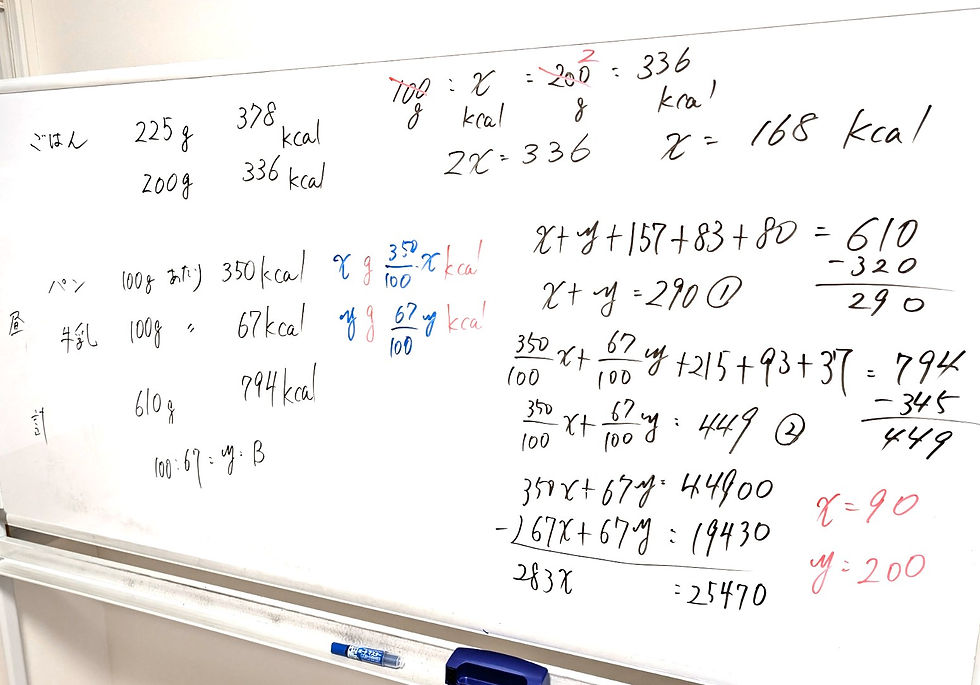 ごはん 225g 378 kcal
200g 336 kcal
100 g : x kcal = 200 2 g : 336 kcal
2x = 336 x = 168 kcal
昼
パン 100g あたり 350kcal x g 350/100 x kcal
牛乳 100g 〃 67kcal y g 67/100 y kcal
計 610g 794kcal
100:67 = y : B
x+y+157+83+80 = 610
-320
290
x+y=290 ①
350/100 x + 67/100 y +215+93+37 = 794
-345
449
350/100 x + 67/100 y = 449 ②
350x+67y=44900
-)67x+67y=19430
283x =25470
x=90
y=200